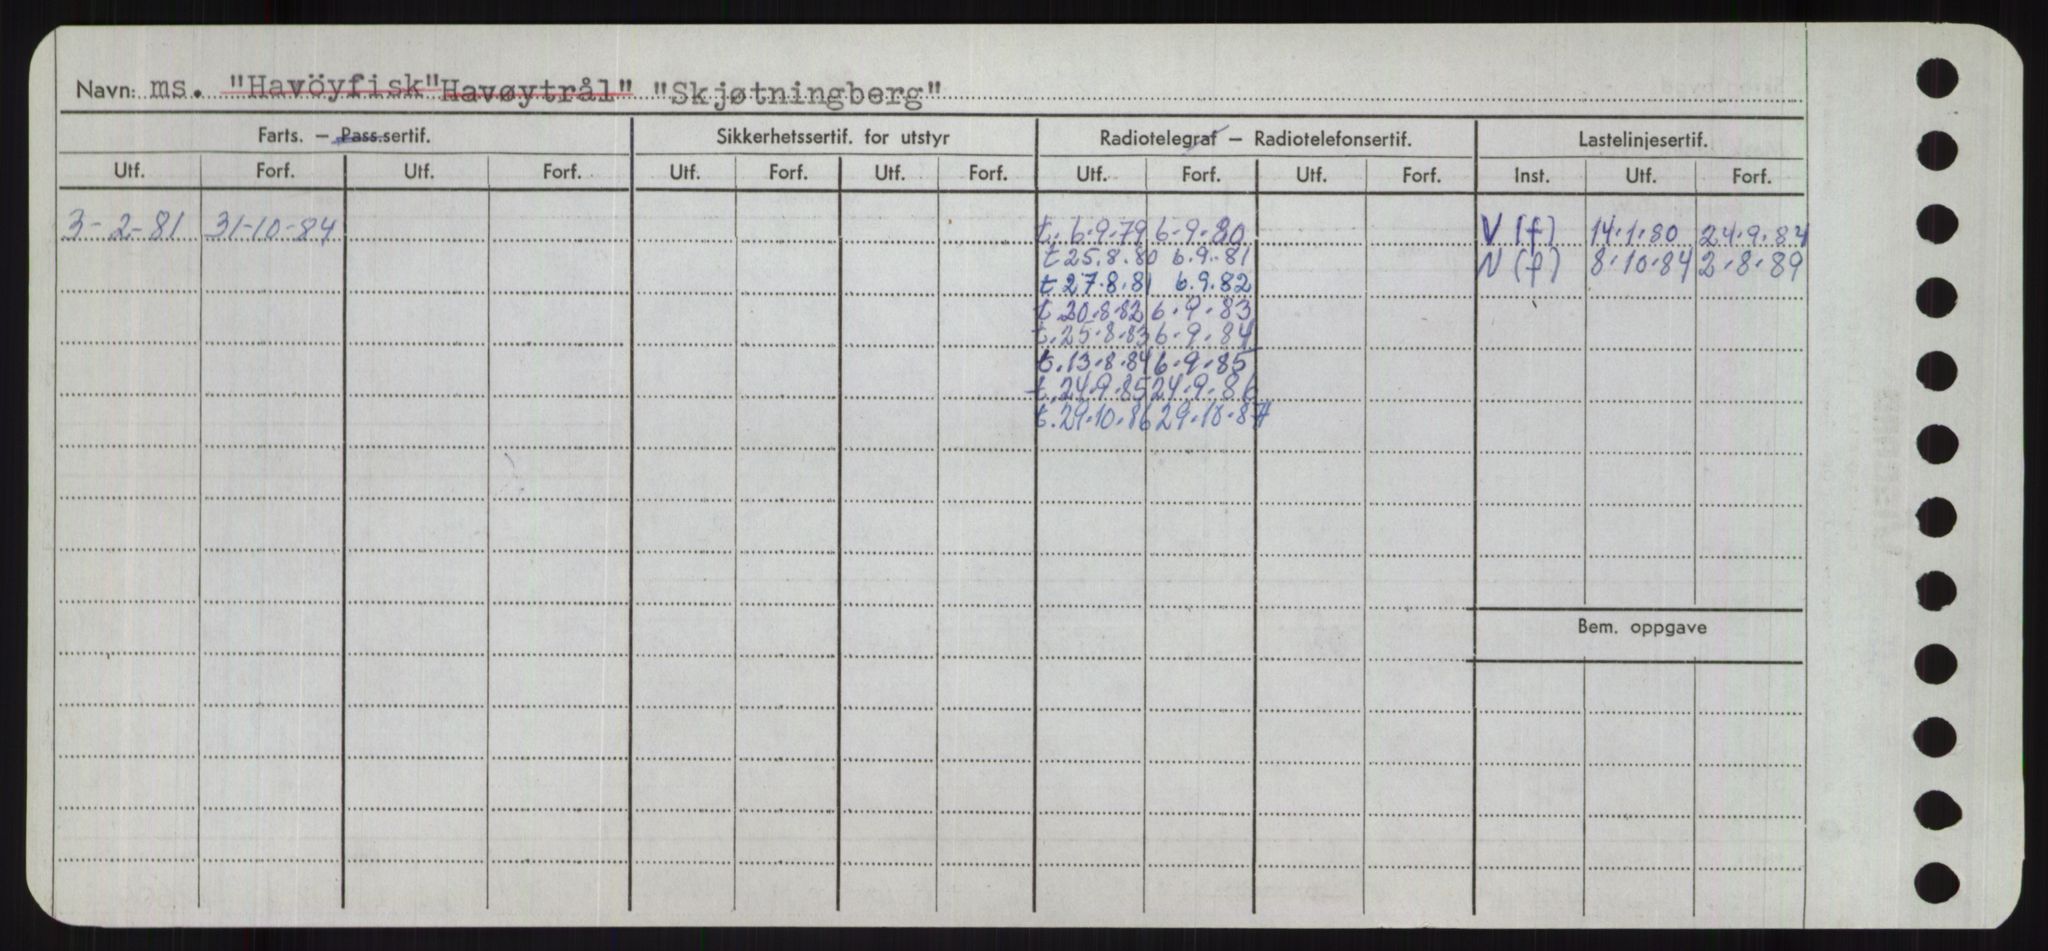 Navn: ms. "Havöyfisk" Havøytrål" "Skjøtningberg"
Farts. — Pass.sertif. Sikkerhetssertif. for utstyr Radiotelegraf — Radiotelefonsertif. Lastelinjesertif.
Utf. Forf. Utf. Forf. Utf. Forf. Utf. Forf. Utf. Forf. Utf. Forf. Inst. Utf. Forf.
3-2-81 31-10-84 t. 6.9.79 6-9.80 V (f) 14.1.80 24.9.84
t 25.8.80 6.9.81 N (f) 8.10.84 2.8.89
t 27.8.81 6.9.82
t 20.8.82 6.9.83
t. 25.8.83 6.9.84
t. 13.8.84 6.9.85
t. 24.9.85 24.9.86
t. 29.10.86 29.10.87
Bem. oppgave